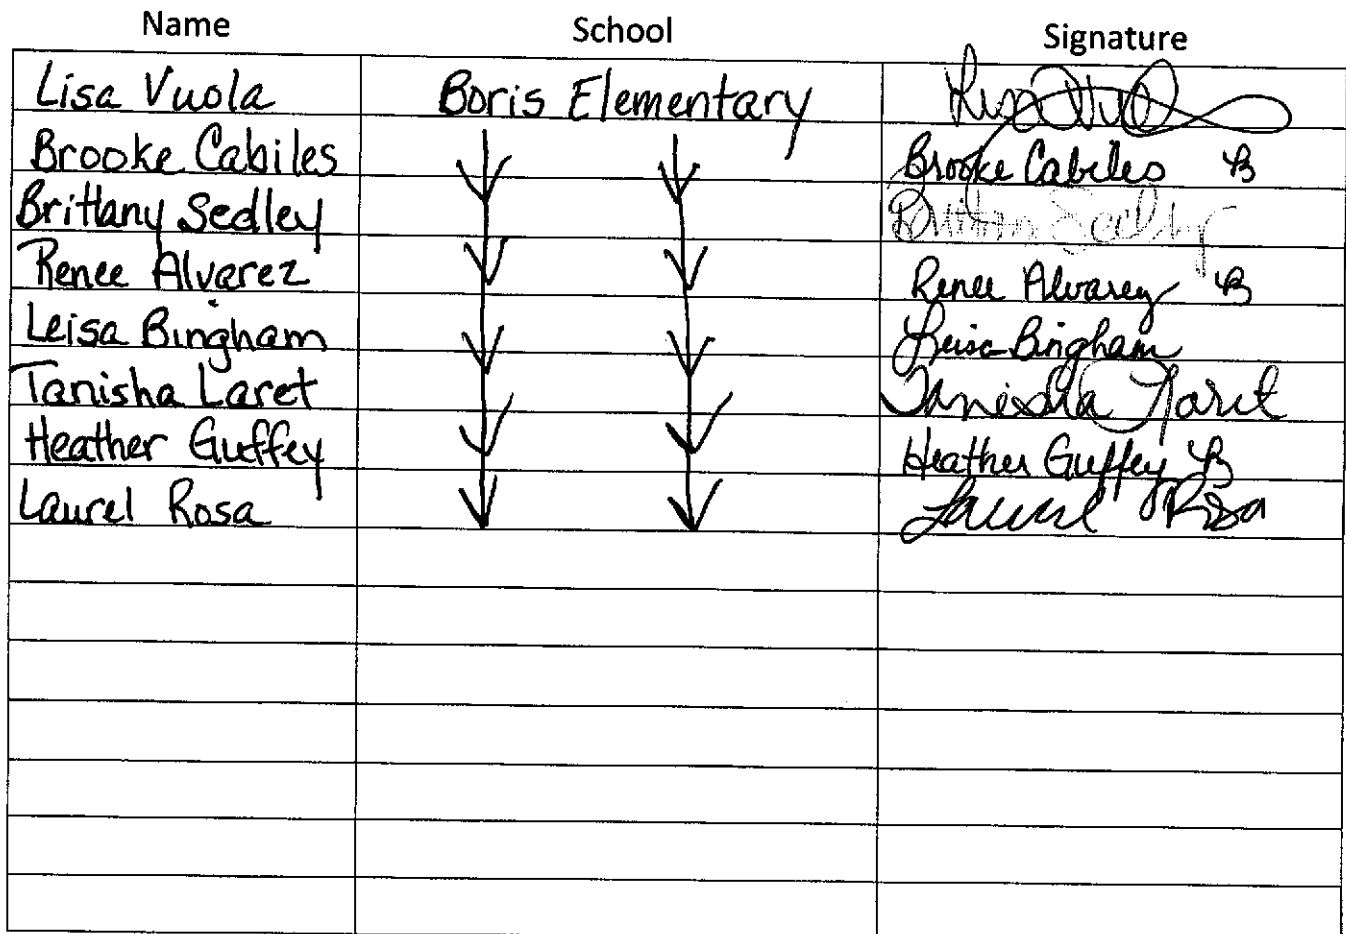 Name School Signature
Lisa Vuola Boris Elementary
Brooke Cabiles Brooke Cabiles
Brittany Sedley Brittany Sedley
Renee Alvarez Renee Alvarez
Leisa Bingham Leisa Bingham
Tanisha Laret Tanisha Laret
Heather Guffey Heather Guffey
Laurel Rosa Laurel Rosa